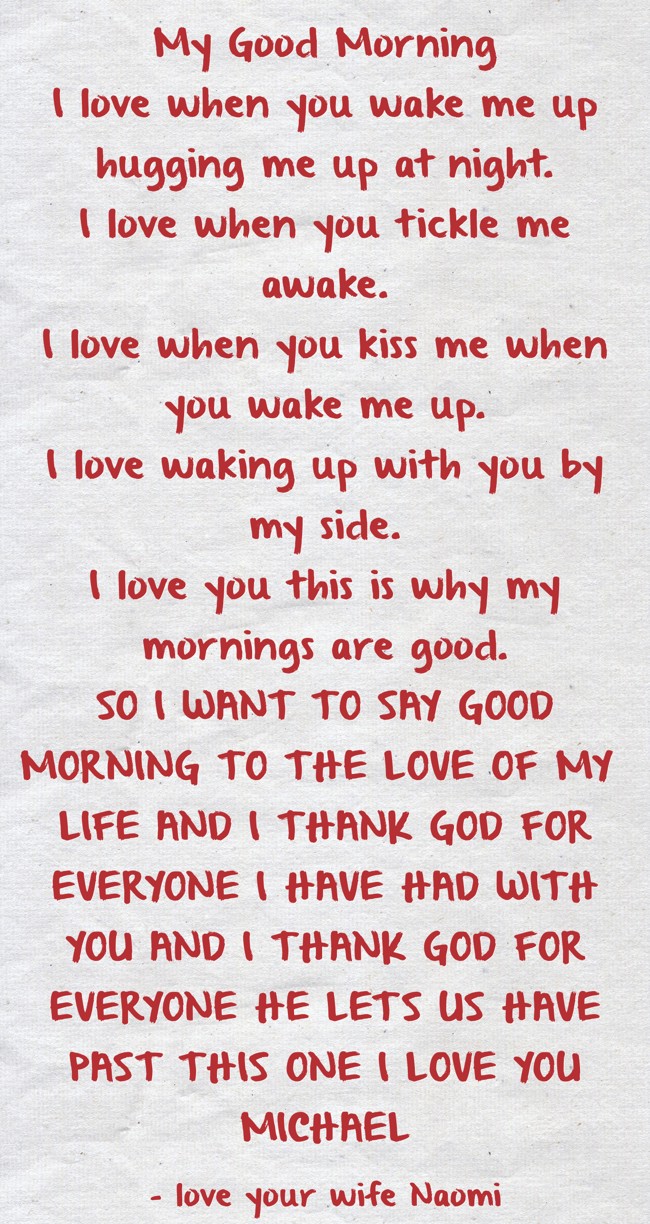 My Good Morning
I love when you wake me up
hugging me up at night.
I love when you tickle me
awake.
I love when you kiss me when
you wake me up.
I love waking up with you by
my side.
I love you this is why my
mornings are good.
SO I WANT TO SAY GOOD
MORNING TO THE LOVE OF MY
LIFE AND I THANK GOD FOR
EVERYONE I HAVE HAD WITH
YOU AND I THANK GOD FOR
EVERYONE HE LETS US HAVE
PAST THIS ONE I LOVE YOU
MICHAEL
- love your wife Naomi